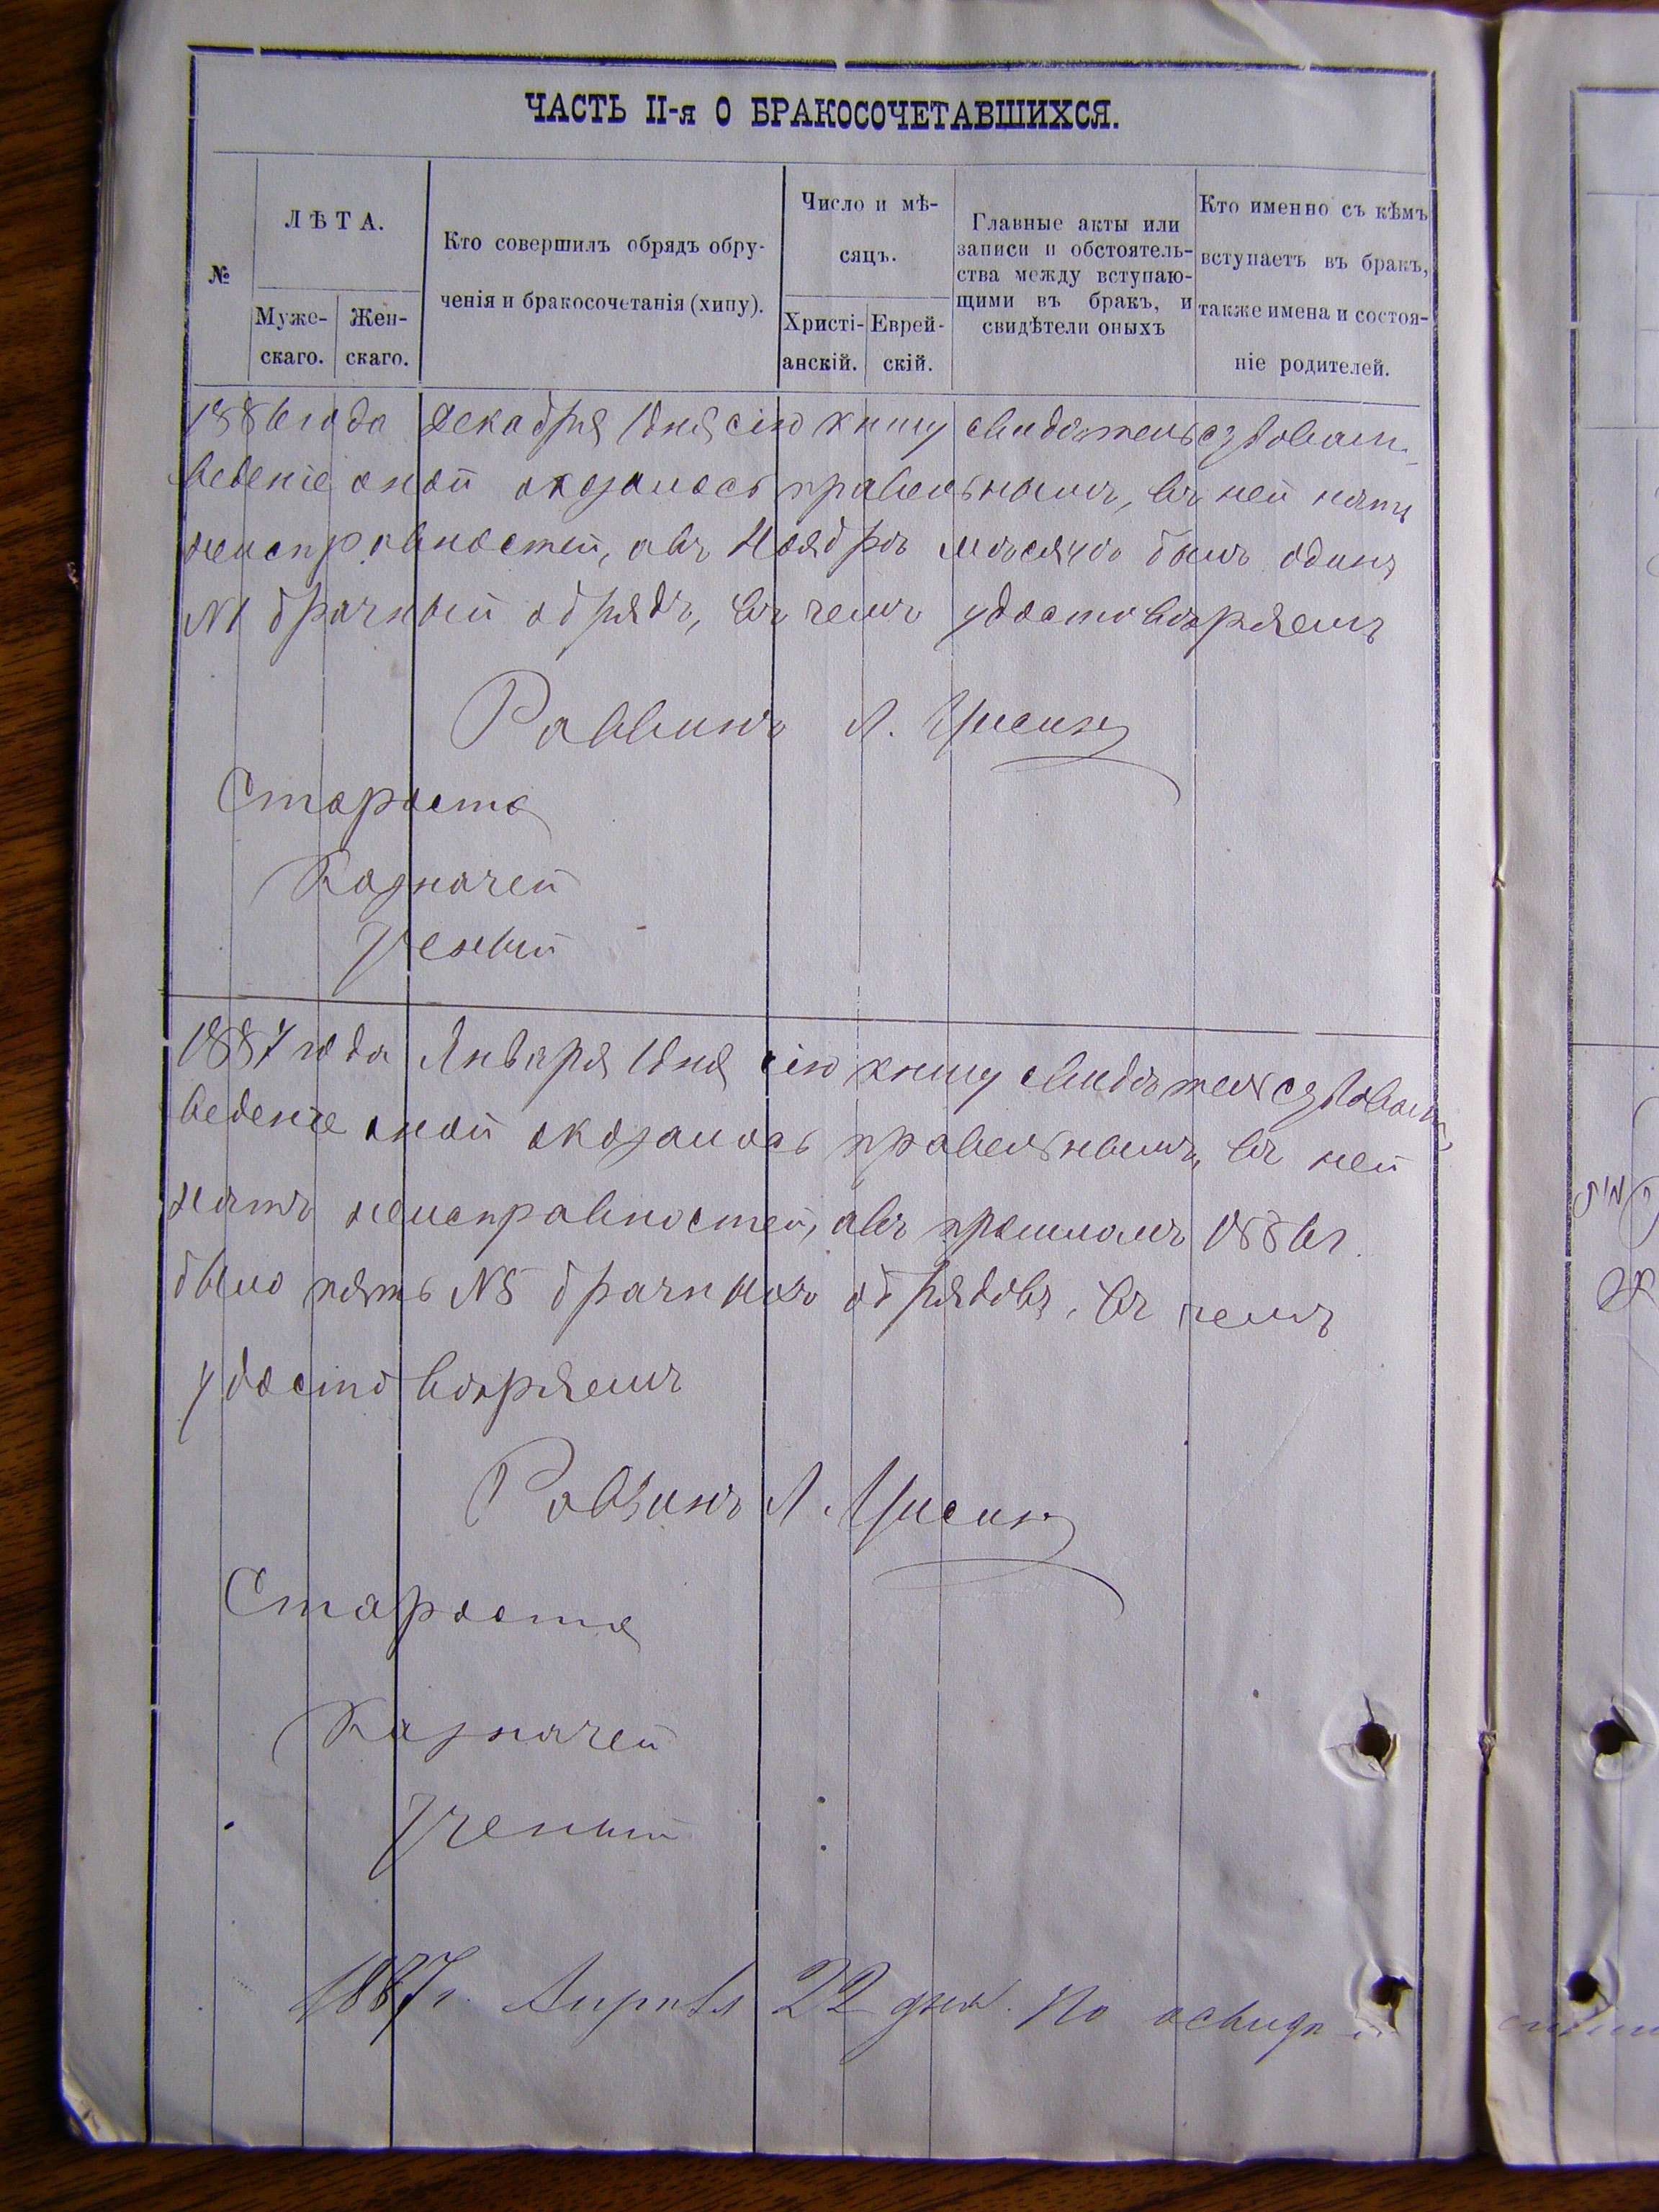 ЧАСТЬ II-я О БРАКОСОЧЕТАВШИХСЯ.
№
ЛѢТА.
Муже-
скаго.
Жен-
скаго.
Кто совершилъ обрядъ обру-
ченія и бракосочетанія (хипу).
Число и мѣ-
сяцъ.
Христі-
анскій.
Еврей-
скій.
Главные акты или
записи и обстоятель-
ства между вступаю-
щими въ бракъ, и
свидѣтели оныхъ
Кто именно съ кѣмъ
вступаетъ въ бракъ,
также имена и состоя-
ніе родителей.
1886 года Декабря 1 дня сію книгу свидѣтельствовали
веденіе оной оказалось правельнымъ, въ ней нѣтъ
неисправностей, а въ Ноябрѣ мѣсяцѣ былъ одинъ
№1 брачный обрядъ, въ чемъ удостовѣряемъ
Раввинъ Л. Цисинъ
Староста
Казначей
Ученый
1887 года Января 1 дня сію книгу свидѣтельствовали
веденіе оной оказалось правельнымъ, въ ней
нѣтъ неисправностей, а въ прошломъ 1886 г.
было пять №5 брачныхъ обрядовъ, въ чемъ
удостовѣряемъ
Раввинъ Л. Цисинъ
Староста
Казначей
Ученый
1887 г. Апрѣля 22 дня. По освидѣ